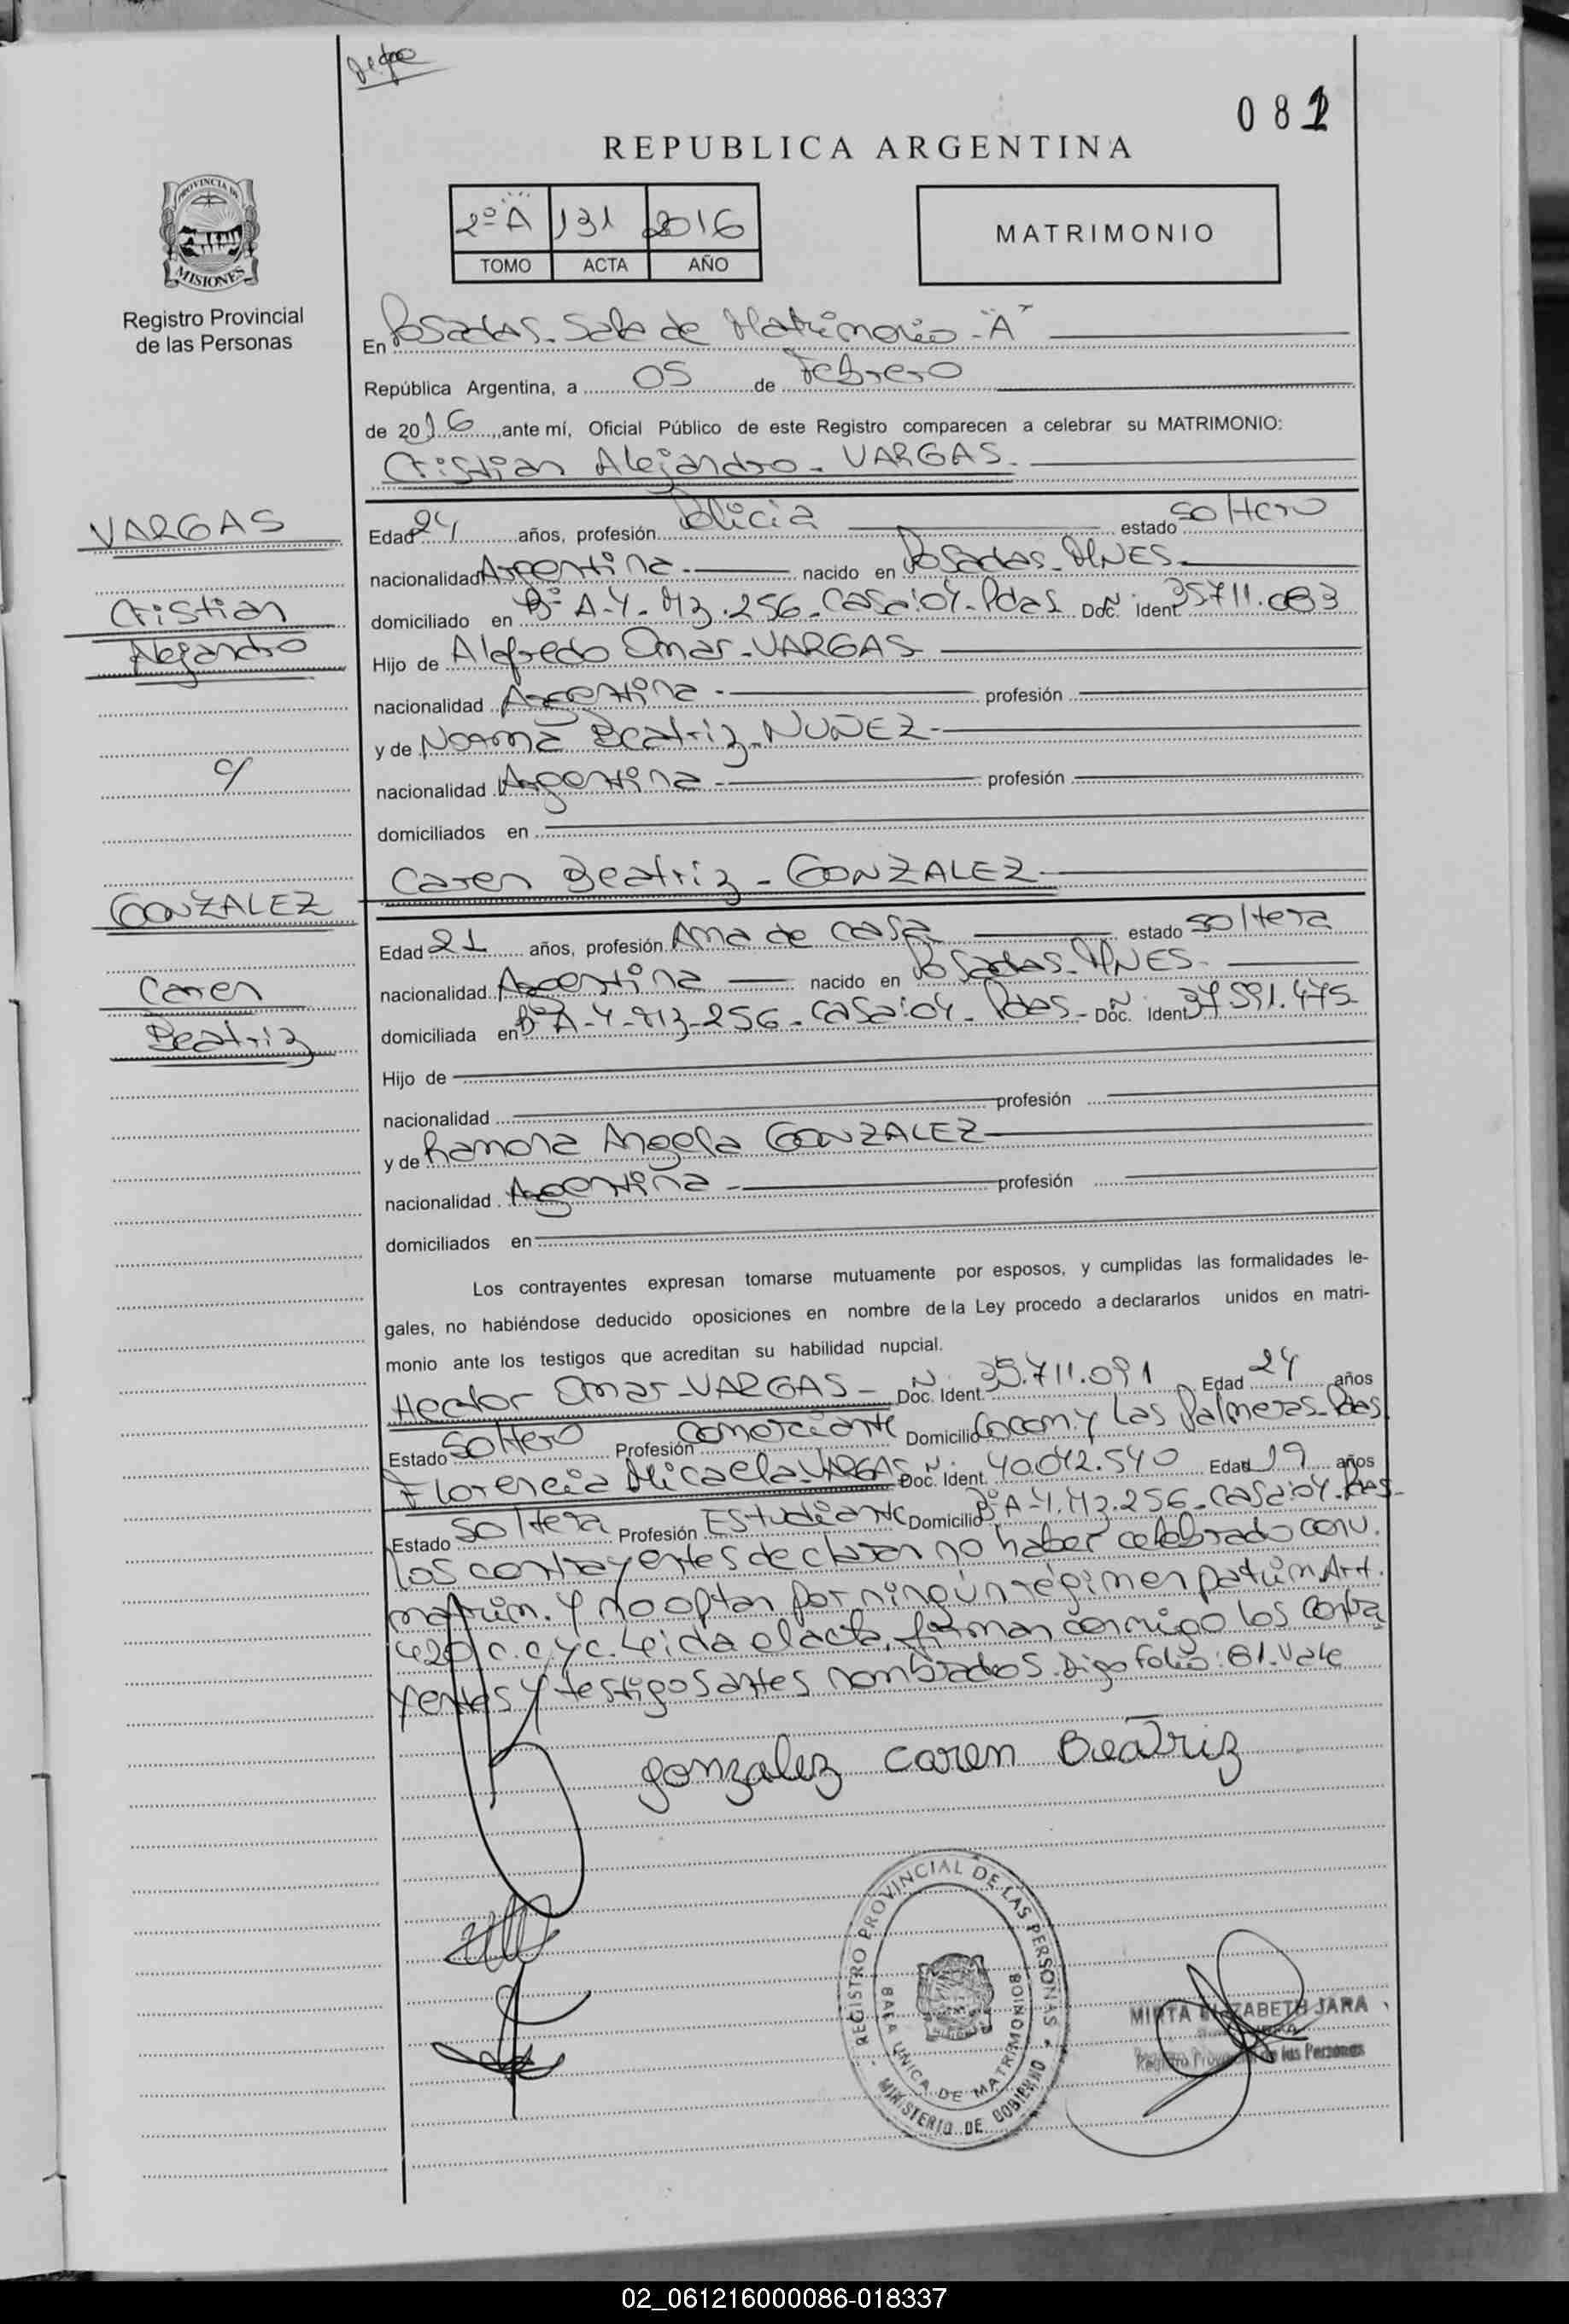 081
REPUBLICA ARGENTINA
PROVINCIA DE
MISIONES
Registro Provincial
de las Personas
2º A 131 2016
TOMO ACTA AÑO
MATRIMONIO
En Posadas - Sala de Matrimonio - "A"
República Argentina, a 05 de Febrero
de 2016, ante mí, Oficial Público de este Registro comparecen a celebrar su MATRIMONIO:
Cristian Alejandro - VARGAS -
VARGAS
Cristian
Alejandro
c/
GONZALEZ
Caren
Beatriz
Edad 24 años, profesión Policia estado soltero
nacionalidad Argentina - nacido en Posadas - MNES -
domiciliado en Bº A-4 - Mz. 256 - Casa: 04 - Pdas Doc. Ident. 35711.083
Hijo de Alefredo Omar - VARGAS
nacionalidad Argentina - profesión
y de Norma Beatriz - NUÑEZ -
nacionalidad Argentina - profesión
domiciliados en
Caren Beatriz - GONZALEZ
Edad 21 años, profesión Ama de casa estado soltera
nacionalidad Argentina nacido en Posadas - MNES -
domiciliada en Bº A-4-Mz-256 - Casa: 04 - Pdas - Doc. Ident. 37.591.475
Hijo de
nacionalidad profesión
y de Ramona Angela GONZALEZ
nacionalidad Argentina - profesión
domiciliados en
Los contrayentes expresan tomarse mutuamente por esposos, y cumplidas las formalidades le-
gales, no habiéndose deducido oposiciones en nombre de la Ley procedo a declararlos unidos en matri-
monio ante los testigos que acreditan su habilidad nupcial.
Hector Omar - VARGAS - Doc. Ident. 35.711.091 Edad 24 años
Estado Soltero Profesión Comerciante Domicilio y Las Palmeras - Pdas
Florencia Micaela - VARGAS Doc. Ident. 40.042.540 Edad 19 años
Estado Soltera Profesión Estudiante Domicilio Bº A-4. Mz. 256 - Casa: 04. Pdas -
Los contrayentes declaran no haber celebrado conv.
matrim. y no optan por ningún régimen patrim. Art.
420 c.c. y c. Leida el acta, firman conmigo los contra
yentes y testigos antes nombrados. Digo Folio: 81. Vale
gonzalez caren Beatriz
REGISTRO PROVINCIAL DE LAS PERSONAS
SALA UNICA DE MATRIMONIOS
MINISTERIO DE GOBIERNO
MIRTA ELIZABETH JARA
Registro Provincial de las Personas
02_061216000086-018337